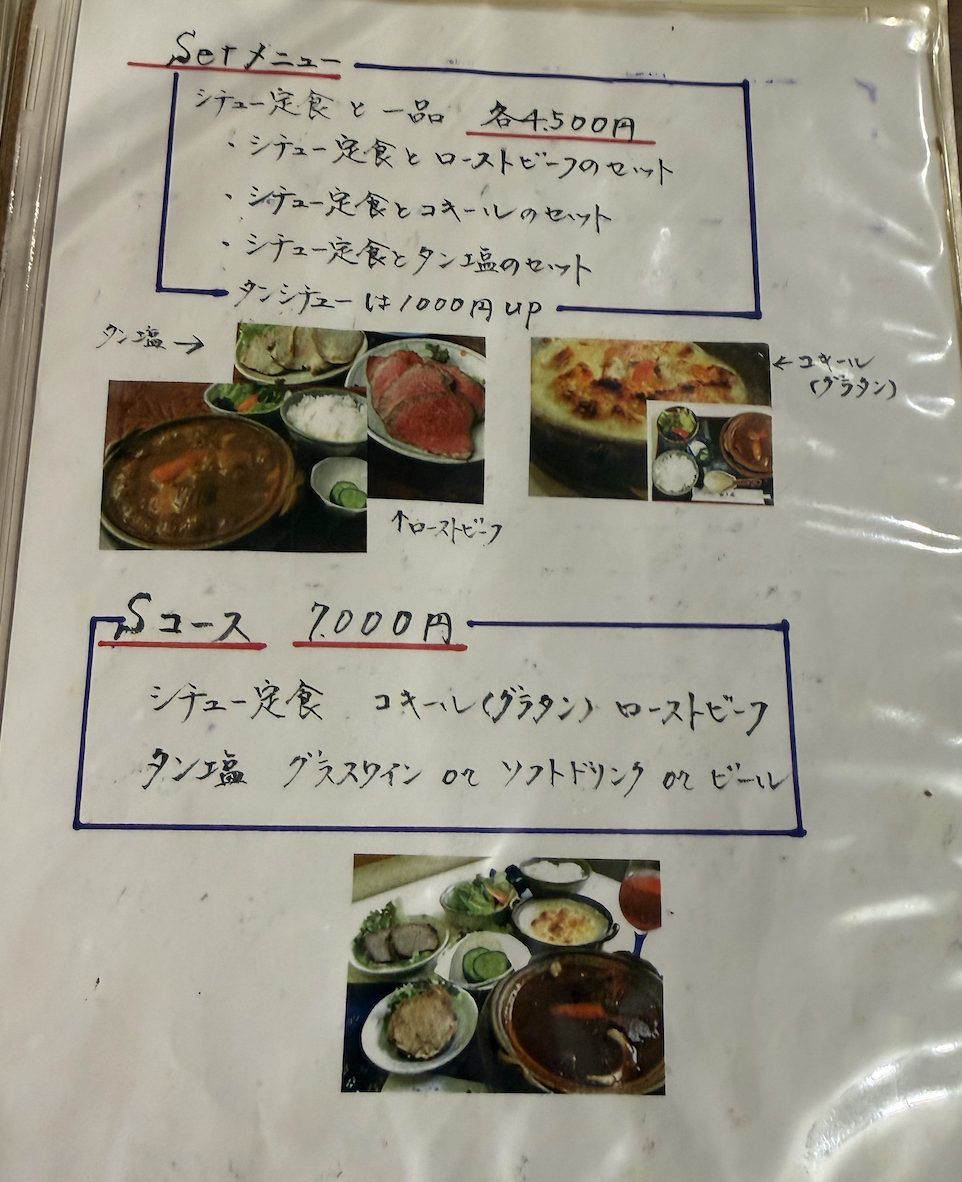 Setメニュー
シチュー定食と一品 各4.500円
・シチュー定食とローストビーフのセット
・シチュー定食とコキールのセット
・シチュー定食とタン塩のセット
タンシチューは1000円up
タン塩→
←コキール
(グラタン)
↑ローストビーフ
Sコース 7.000円
シチュー定食 コキール(グラタン) ローストビーフ
タン塩 グラスワイン or ソフトドリンク or ビール